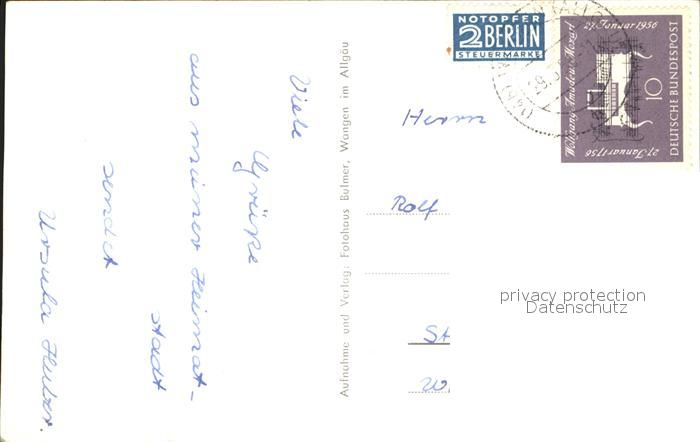 Viele
Grüße
aus meiner Heimat-
stadt
sendet
Ursula
Aufnahme und Verlag: Fotohaus Bulmer, Wangen im Allgäu
NOTOPFER
2 BERLIN
STEUERMARKE
27. Januar 1956
Wolfgang Amadeus Mozart
27. Januar 1756
10
DEUTSCHE BUNDESPOST
Herrn
Rolf
St
W
privacy protection
Datenschutz